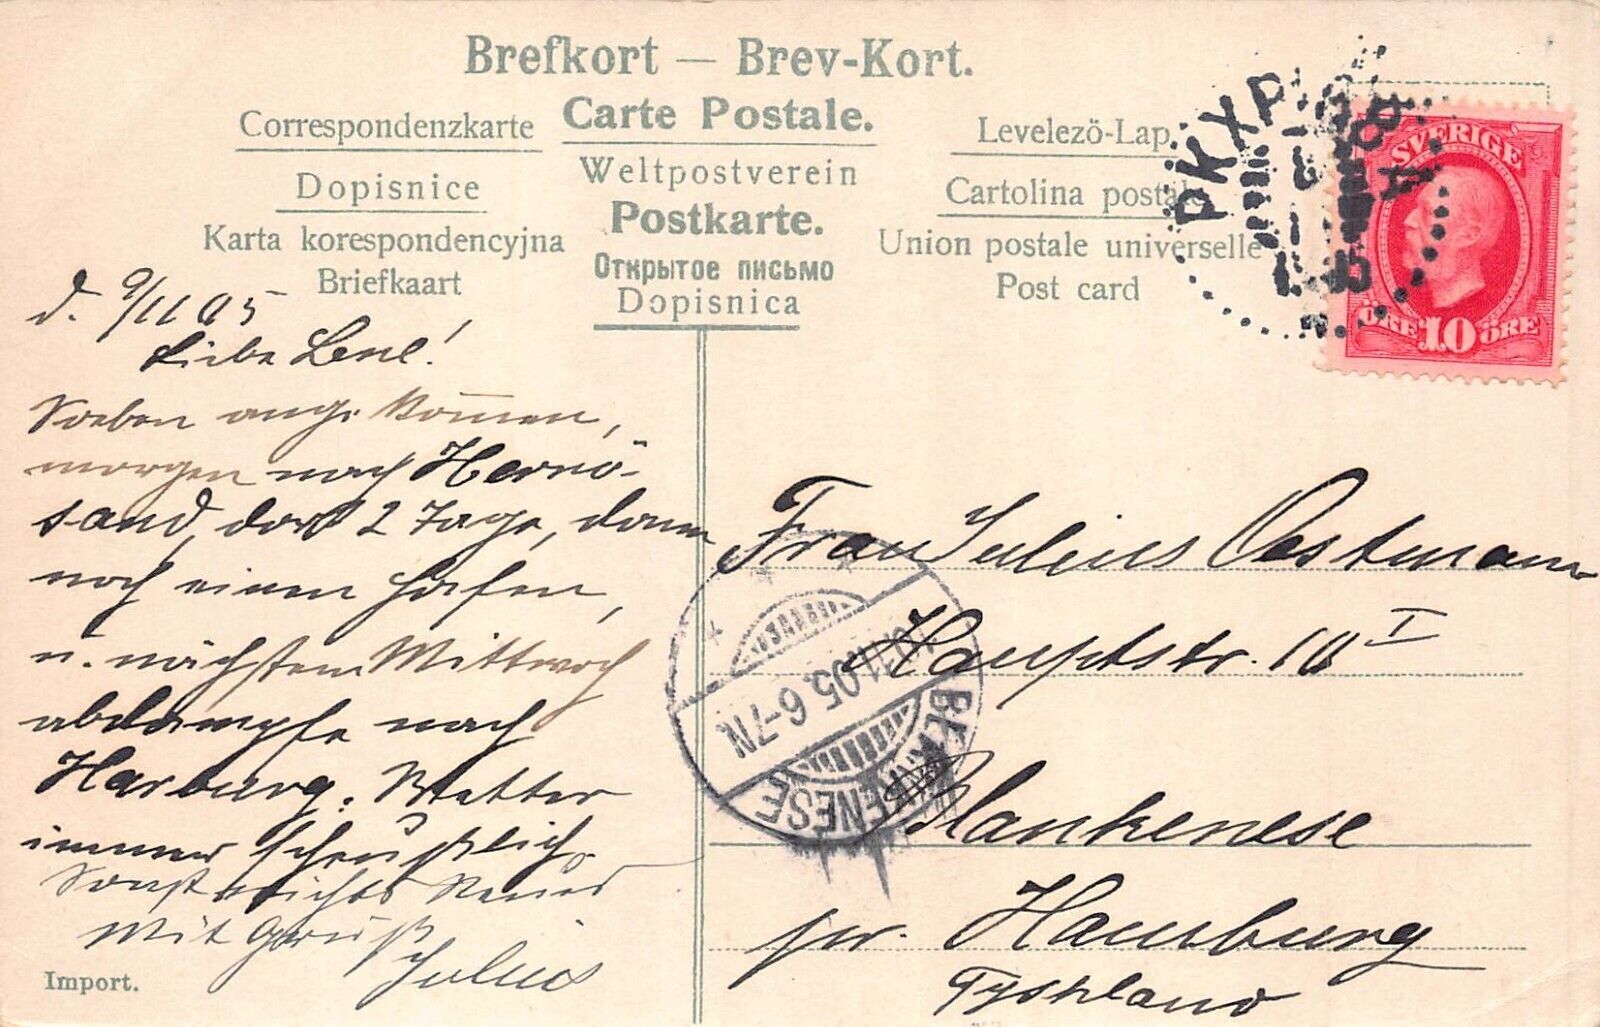 Brefkort — Brev-Kort.
Correspondenzkarte
Carte Postale.
Levelező-Lap.
Dopisnice
Weltpostverein
Cartolina postale
Karta korespondencyjna
Postkarte.
Union postale universelle
Briefkaart
Открытое письмо
Post card
Dopisnica
SVERIGE
ÖRE 10 ÖRE
PKXP
d. 9/11 05
Liebe Lene!
Soeben angekom̅en,
morgen nach Hernö-
sand, dort 2 Tage, dann
noch einen Hafen,
u. nächsten Mittwoch
abdampfe nach
Harburg. Wetter
immer scheußlich.
Sonst nichts Neues
Mit Gruß
Julius
Frau Julius Oestmann
Hauptstr. 10 I
Blankenese
pr. Hamburg
Tyskland
BLANKENESE
11.05. 6-7N
Import.